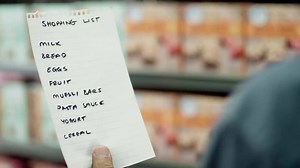 SHOPPING LIST
MILK
BREAD
EGGS
FRUIT
MUESLI BARS
PASTA SAUCE
YOGURT
CEREAL